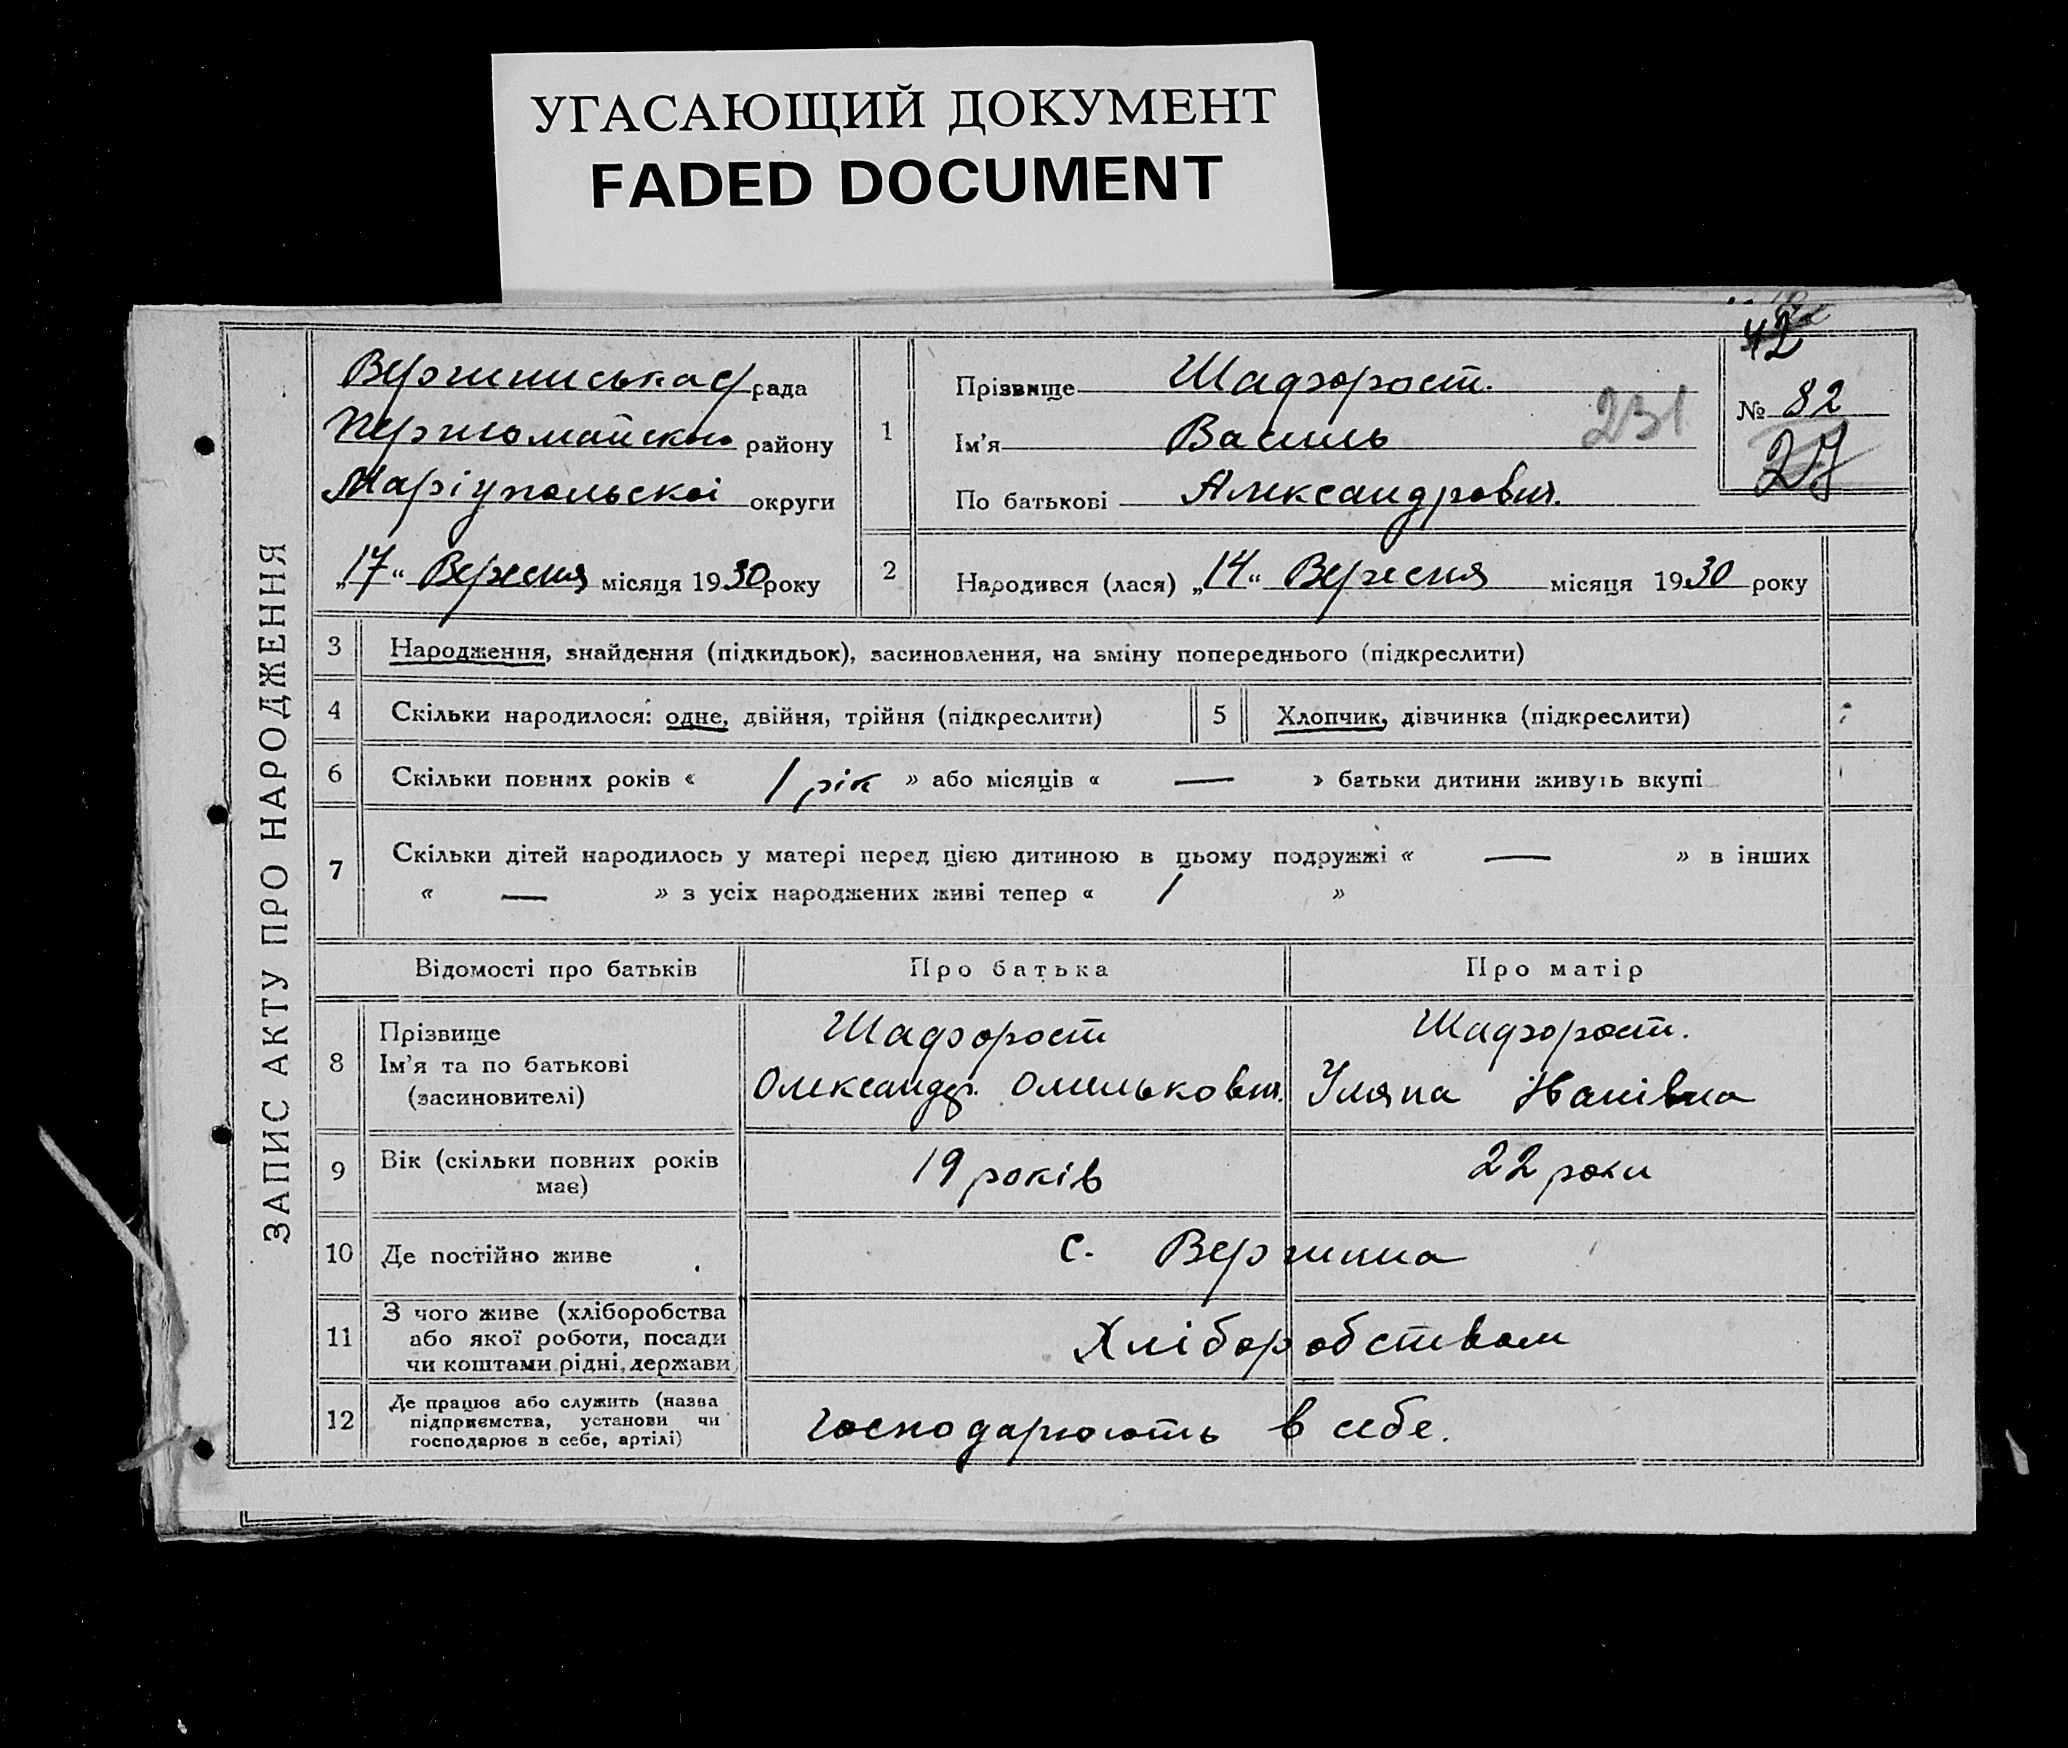 УГАСАЮЩИЙ ДОКУМЕНТ
FADED DOCUMENT
ЗАПИС АКТУ ПРО НАРОДЖЕННЯ
Вершинська с/рада
району
Маріупольскої округи
„17“ Вересня місяця 1930 року
42
1 Прізвище Шадхорост.
Ім’я Василь 231
По батькові Александрович.
№ 82
27
2 Народився (лася) „14“ Вересня місяця 1930 року
3 Народження, знайдення (підкидьок), засиновлення, на зміну попереднього (підкреслити)
4 Скільки народилося: одне, двійня, трійня (підкреслити) 5 Хлопчик, дівчинка (підкреслити)
6 Скільки повних років « 1 рік » або місяців « — » батьки дитини живуть вкупі
7 Скільки дітей народилось у матері перед цією дитиною в цьому подружжі « — » в інших
« — » з усіх народжених живі тепер « 1 »
Відомості про батьків Про батька Про матір
8 Прізвище Шадхорост Шадхорост.
Ім’я та по батькові Олександр. Омелькович. Уляна Іванівна
(засиновителі)
9 Вік (скільки повних років має) 19 років 22 роки
10 Де постійно живе с. Вершина
11 З чого живе (хліборобства
або якої роботи, посади Хліборобством
чи коштами рідні, держави)
12 Де працює або служить (назва
підприємства, установи чи господарюють в себе.
господарює в себе, артілі)